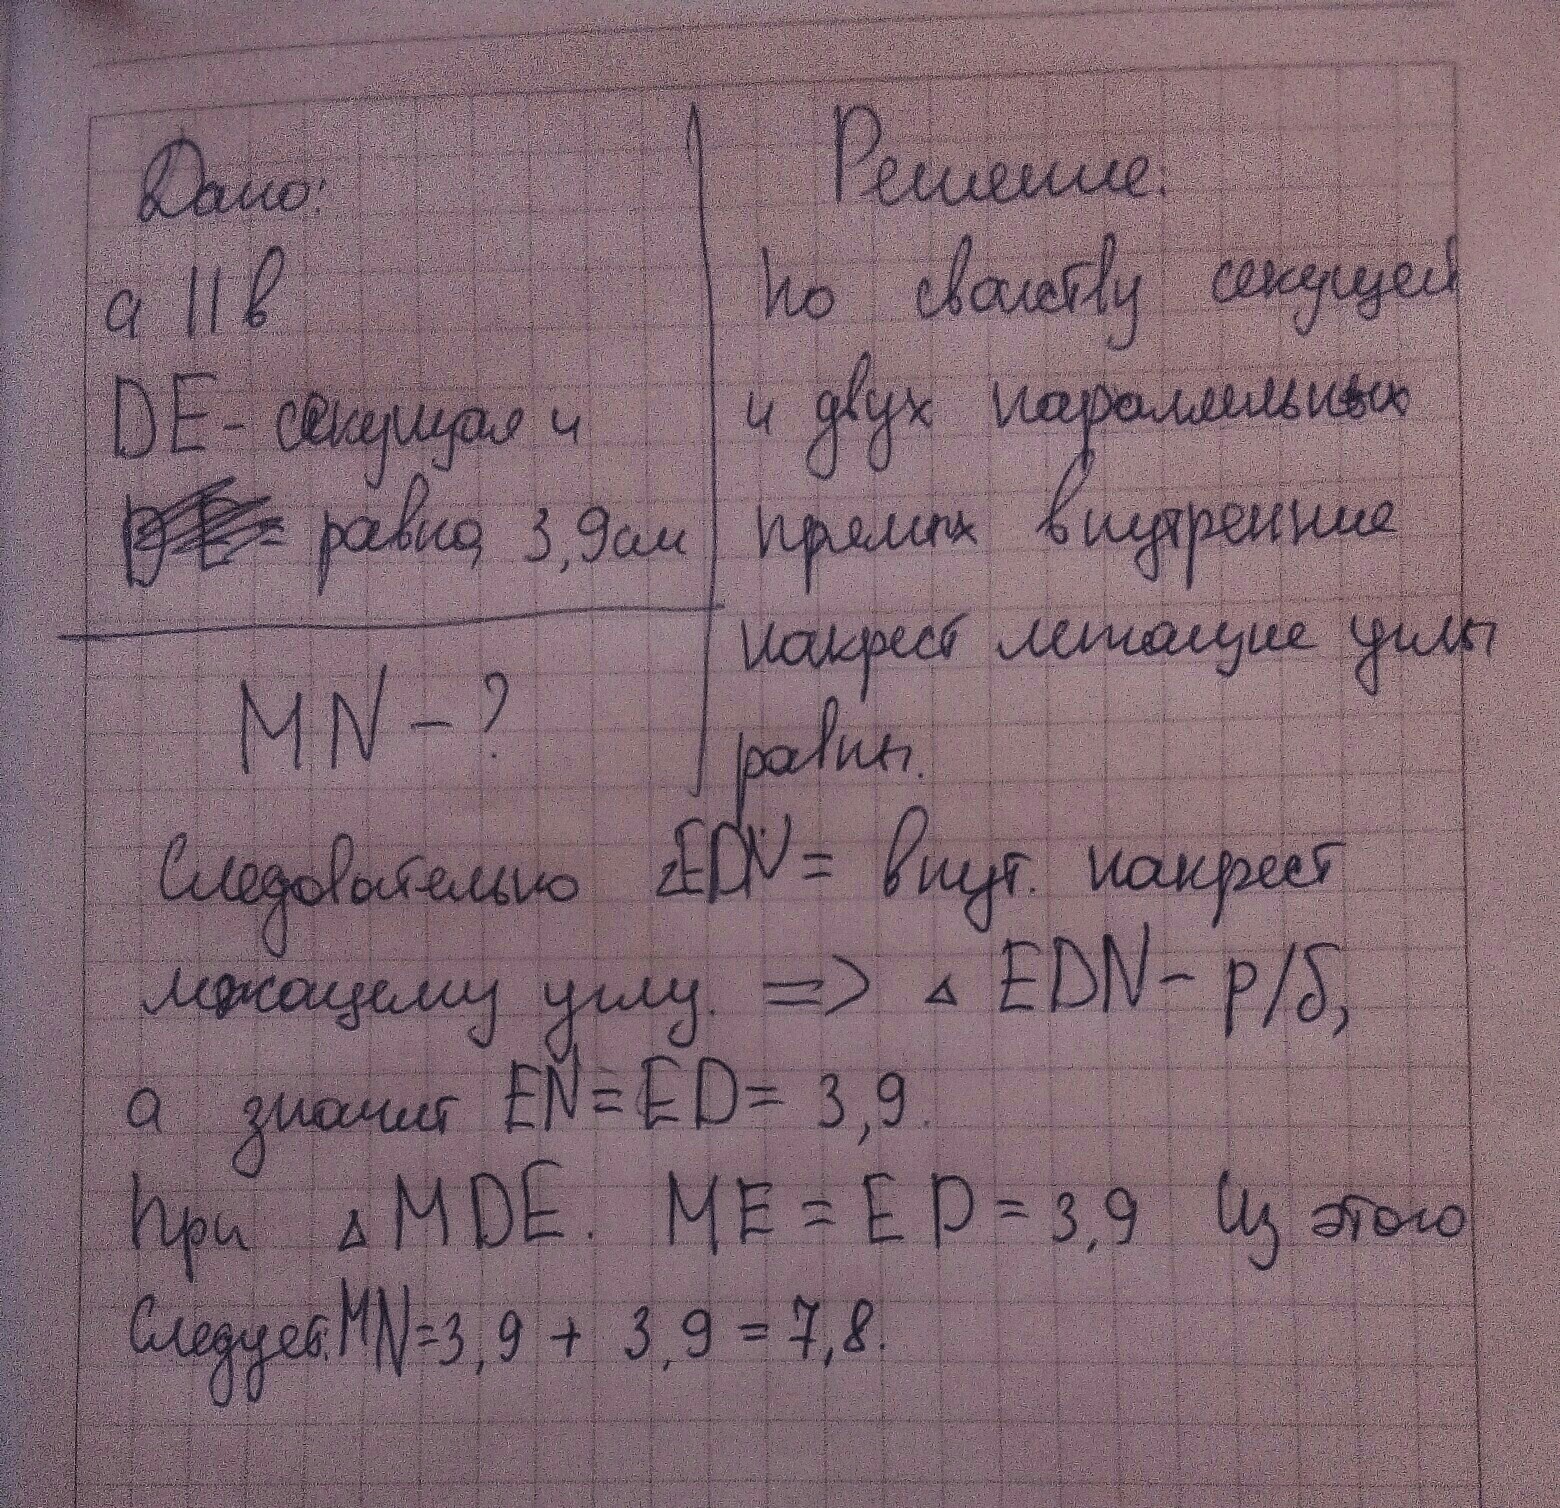 Дано:
a || в
DE - секущая и
равна 3,9 см
MN - ?
Решение:
по свойству секущей
и двух параллельных
прямых внутренние
накрест лежащие углы
равны.
Следовательно ∠EDN = внут. накрест
лежащему углу. => △ EDN - р/б,
а значит EN = ED = 3,9.
При △ MDE. ME = ED = 3,9 Из этого
Следует: MN = 3,9 + 3,9 = 7,8.